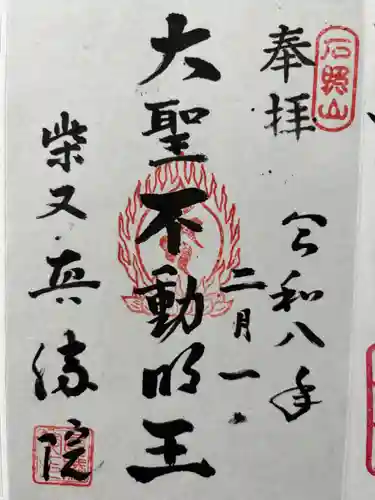 石照山
奉拝
令和八年
二月一日
大聖不動明王
柴又真勝院